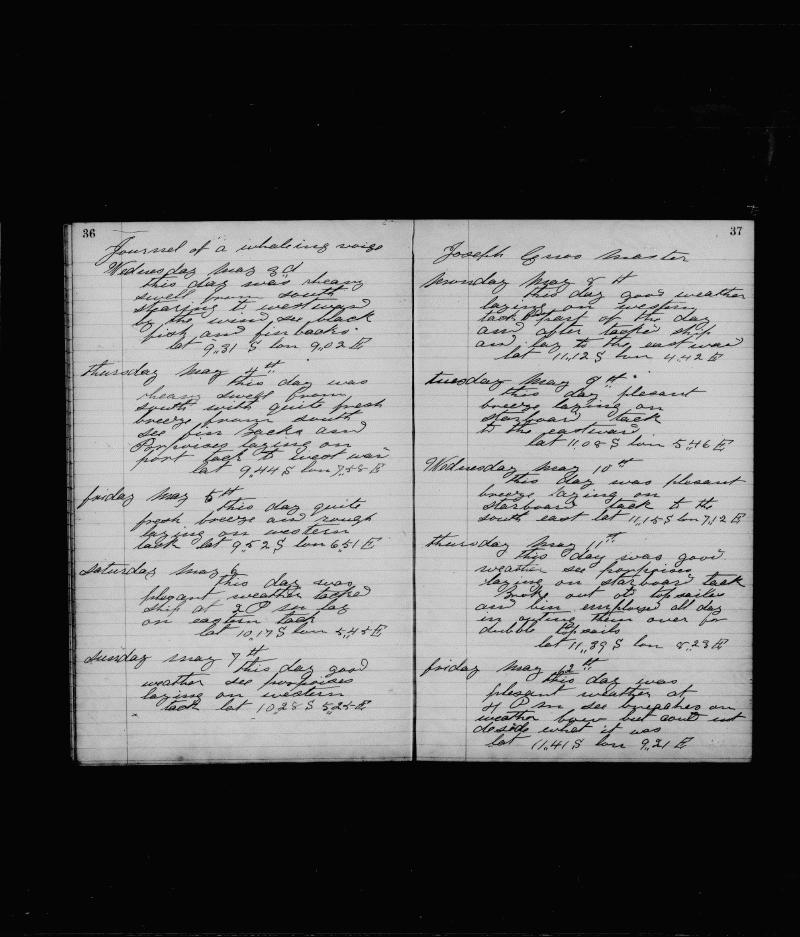 36
Journal of a whaleing voige
Wednesday may 3d
this day was heavy
swell from south
stearing to westward
by the wind see black
fish and finbacks
lat 9,,31 S lon 9,,02 E
thursday may 4th
this day was
heavy swell from
south with quite fresh
breeze from south
see fin Backs and
Porpoises laying on
port tack to westward
lat 9,,44 S lon 7,,58 E
friday may 5th
this day quite
fresh breeze and rough
laying on western
tack lat 9,,52 S lon 6,51 E
saturday may 6
this day was
plesant weather tacked
ship at 2 P m lay
on eastern tack
lat 10,,17 S lon 5,,45 E
sunday may 7th
this day good
weather see porpoises
laying on western
tack lat 10,28 S 5,,25 E
37
Joseph Enos Master
monday may 8th
this day good weather
laying on western
tack part of the day
and after tacked ship
and lay to the eastward
lat 11,,12 S lon 4,,42 E
tuesday may 9th
this day plesant
breeze laying on
starboard tack
to the eastward
lat 11,,08 S lon 5,,46 E
Wednesday may 10th
this day was plesant
breeze laying on
starboard tack to the
south east lat 11,,15 S lon 7,12 E
thursday may 11th
this day was good
weather see porpoises
laying on starboard tack
broke out old topsailes
and bin employed all day
in cuting them over for
dubble topsails
lat 11,,39 S lon 8,,23 E
friday may 12th
this day was
plesant weather at
4 P m see breaches on
weather bow but could not
deside what it was
lat 11,,41 S lon 9,,21 E